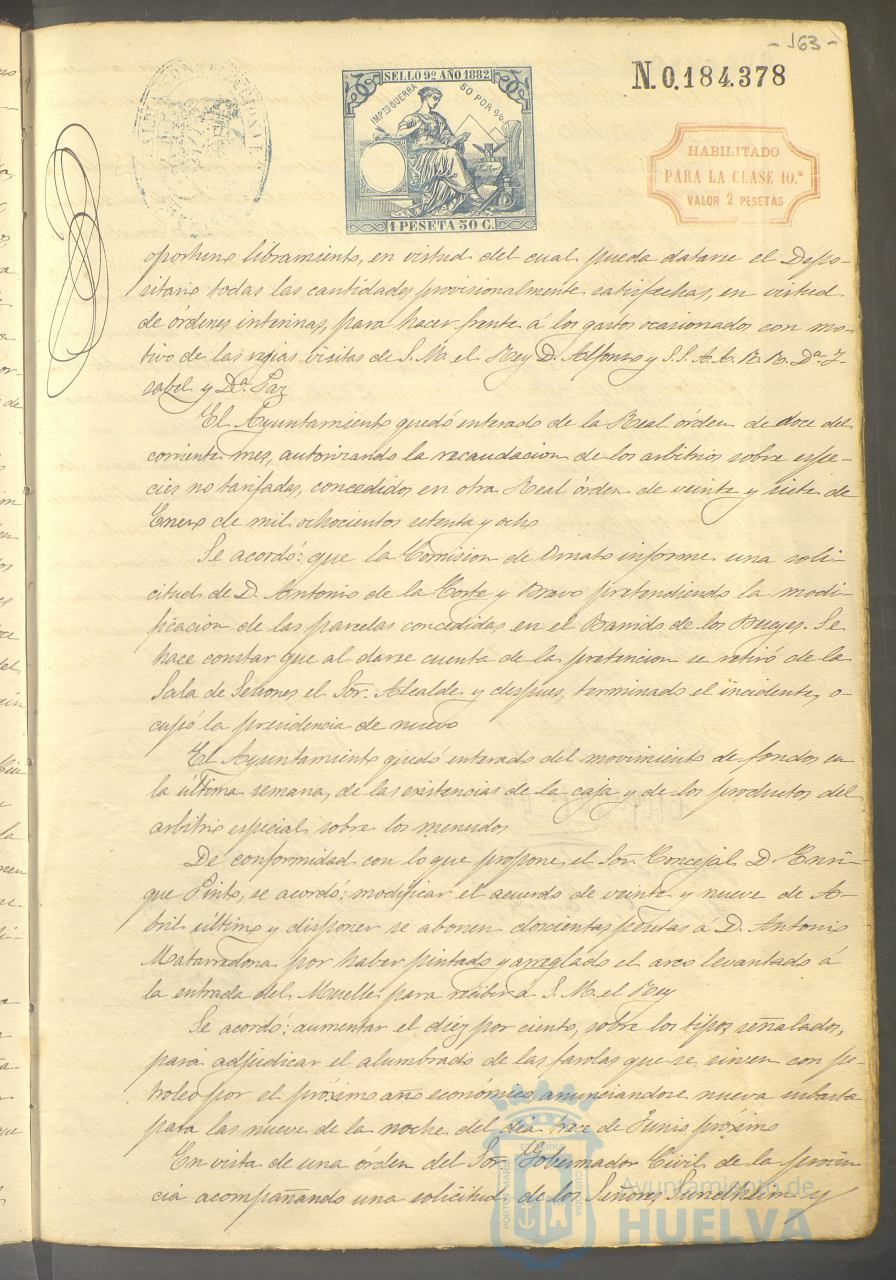 - 163 -
SELLO 9º AÑO 1882
IMPTO GUERRA 50 POR %
1 PESETA 50 C.
N. 0.184.378
HABILITADO
PARA LA CLASE 10.ª
VALOR 2 PESETAS
oportuno libramiento, en virtud del cual pueda datarse el Depo-
sitario todas las cantidades provisionalmente satisfechas, en virtud
de órdenes interinas, para hacer frente á los gastos ocasionados con mo-
tivo de las regias visitas de S. M. el Rey D. Alfonso y S.S. A.A. R.R. Dª. I-
sabel y Dª. Paz
El Ayuntamiento quedó enterado de la Real órden de doce del
corriente mes, autorizando la recaudacion de los arbitrios sobre espe-
cies no tarifadas, concedidos en otra Real órden de veinte y siete de
Enero de mil ochocientos setenta y ocho
Se acordó: que la Comision de Ornato informe una soli-
citud de D. Antonio de la Corte y Bravo pretendiendo la modi-
ficacion de las parcelas concedidas en el Barrido de los Bueyes. Se
hace constar que al darse cuenta de la pretencion se retiró de la
Sala de Sesiones, el Sor. Alcalde y despues, terminado el incidente, o-
cupó la presidencia de nuevo
El Ayuntamiento quedó enterado del movimiento de fondos en
la última semana, de las existencias de la caja y de los productos del
arbitrio especial sobre los menudos
De conformidad con lo que propone el Sor. Concejal D. Enri-
que Pinto, se acordó: modificar el acuerdo de veinte y nueve de A-
bril último y disponer se abonen doscientas pesetas á D. Antonio
Matarredona por haber pintado y arreglado el arco levantado á
la entrada del Muelle para recibir á S. M. el Rey
Se acordó: aumentar el diez por ciento, sobre los tipos señalados,
para adjudicar el alumbrado de las farolas que se sirven con pe-
troleo por el próximo año económico, anunciandose nueva subasta
para las nueve de la noche del dia trece de Junio próximo
En vista de una órden del Sor. Gobernador Civil de la provin
cia acompañando una solicitud de los Señores Sundheim y
Ayuntamiento de
HUELVA